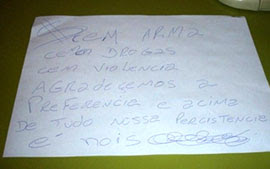 CEM ARMA
CEM DROGAS
CEM VIOLENCIA
AGRADECEMOS A
PREFERENCIA E ACIMA
DE TUDO NOSSA PERCISTENCIA
E' NOIS